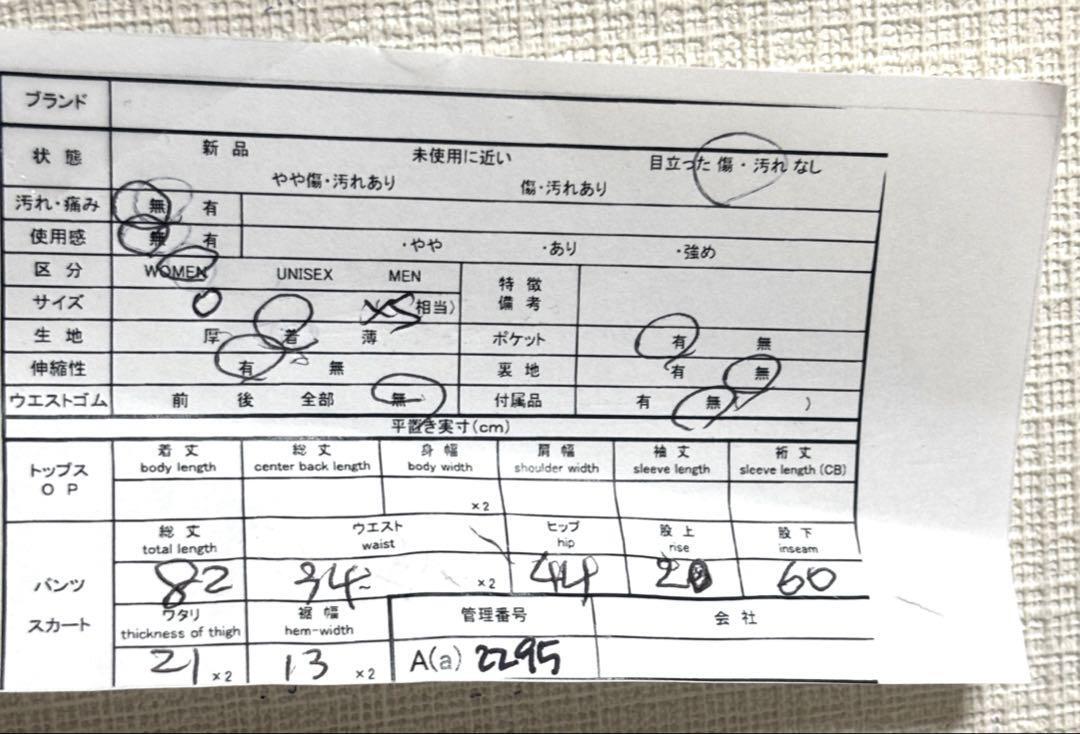 ブランド
状態 新品 未使用に近い 目立った 傷・汚れ なし
やや傷・汚れあり 傷・汚れあり
汚れ・痛み 無 有
使用感 無 有 ・やや ・あり ・強め
区分 WOMEN UNISEX MEN 特徴
備考
サイズ 0 XS 相当)
生地 厚 着 薄 ポケット 有 無
伸縮性 有 無 裏地 有 無
ウエストゴム 前 後 全部 無 付属品 有 無( )
平置き実寸(cm)
トップス
OP
着丈 総丈 身幅 肩幅 袖丈 裄丈
body length center back length body width shoulder width sleeve length sleeve length (CB)
×2
パンツ
スカート
総丈 ウエスト ヒップ 股上 股下
total length waist hip rise inseam
82 34 ×2 44 20 60
ワタリ 裾幅 管理番号 会社
thickness of thigh hem-width
21 ×2 13 ×2 A(a) 2295